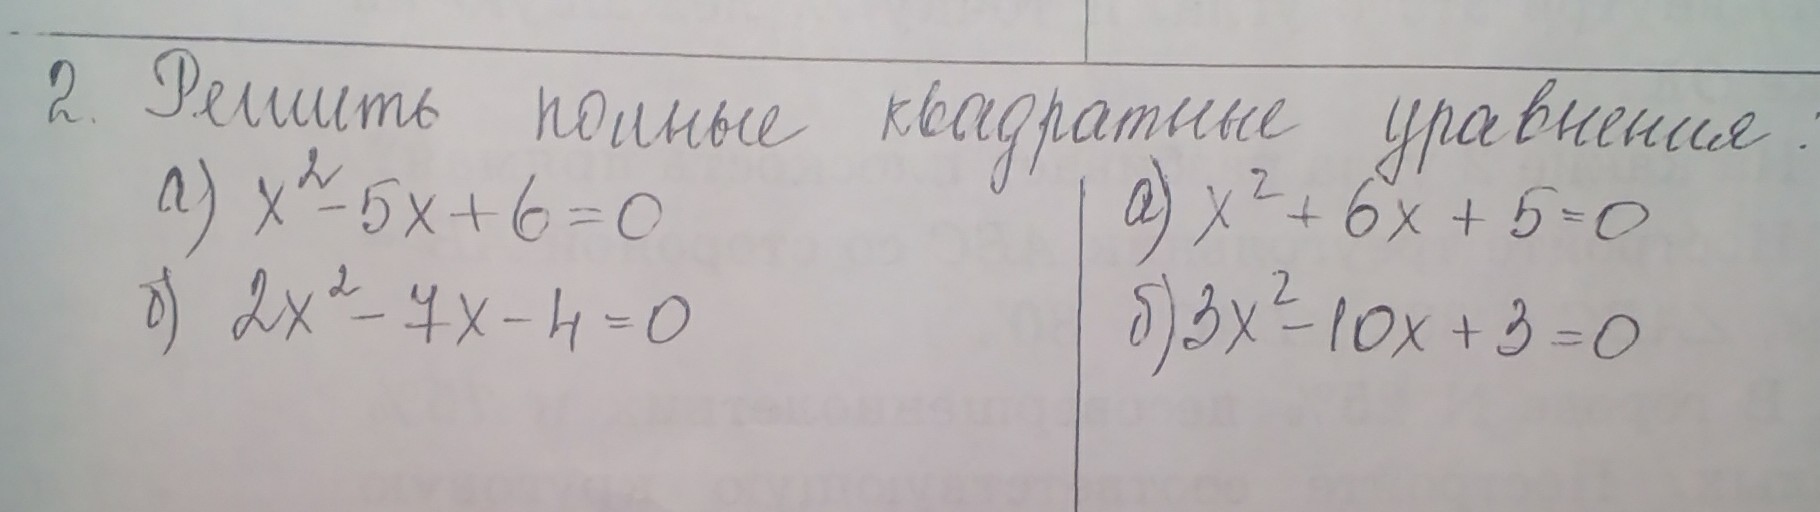 2. Решить полные квадратные уравнения:
а) x² - 5x + 6 = 0
б) 2x² - 7x - 4 = 0
а) x² + 6x + 5 = 0
б) 3x² - 10x + 3 = 0